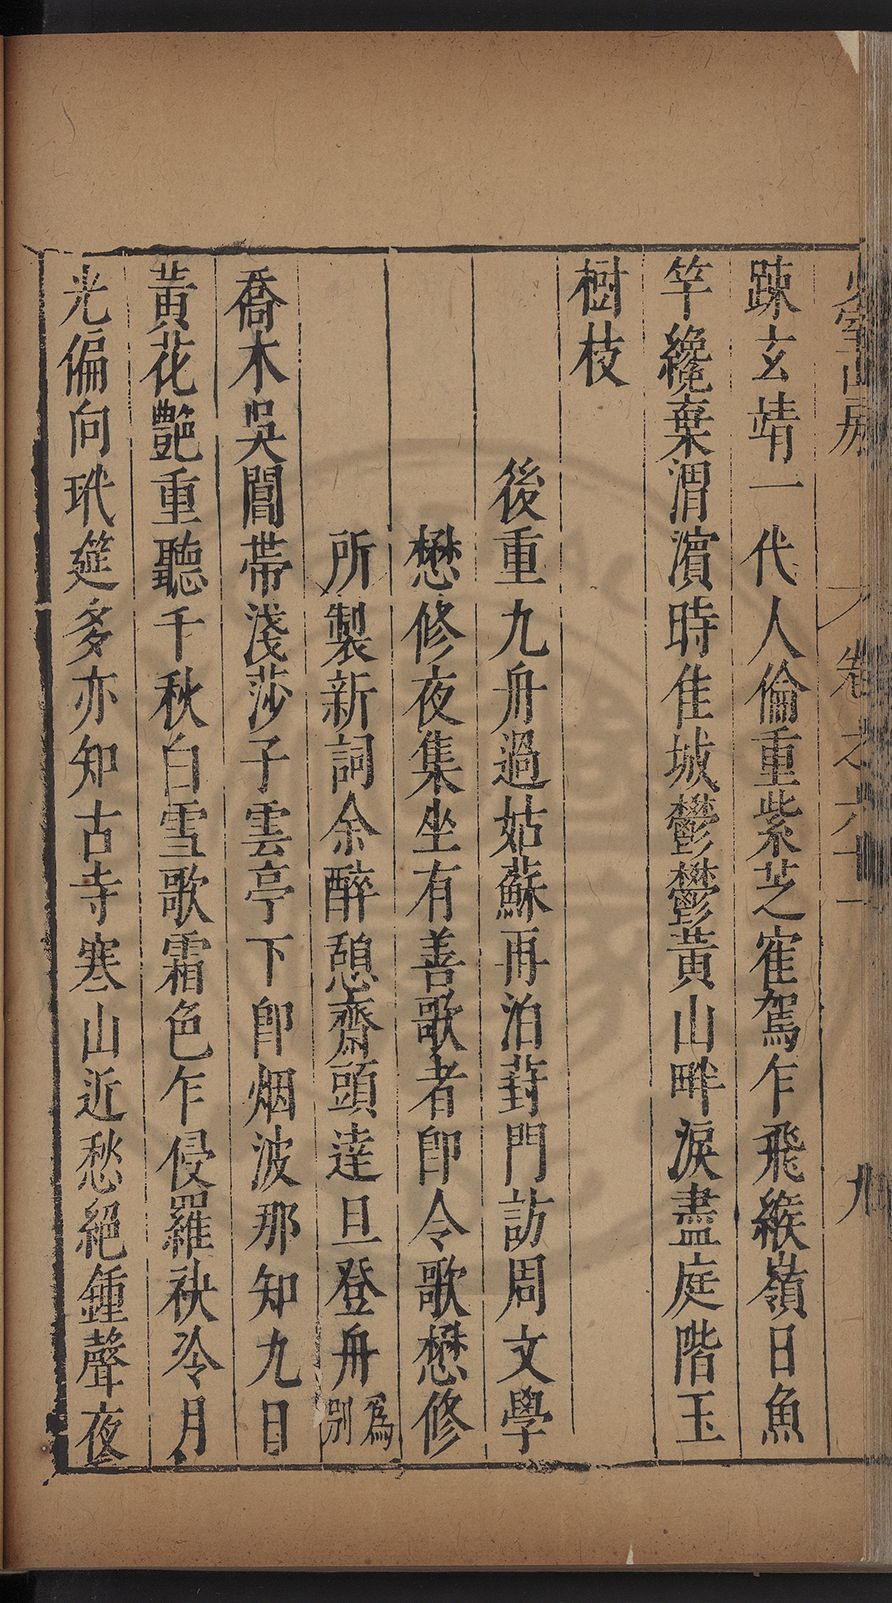 少室山房 卷之六十一 九
踈玄靖一代人倫重紫芝寉駕乍飛緱嶺日魚
竿纔棄渭濵時佳城鬱鬱黄山畔淚盡庭階玉
樹枝
後重九舟過姑蘇再泊葑門訪周文學
懋修夜集坐有善歌者卽令歌懋修
所製新詞余醉憩齋頭達旦登舟爲別
喬木吳閶帯淺莎子雲亭下卽烟波那知九日
黄花艶重聽千秋白雪歌霜色乍侵羅袂冷月
光偏向玳筵多亦知古寺寒山近愁絕鍾聲夜